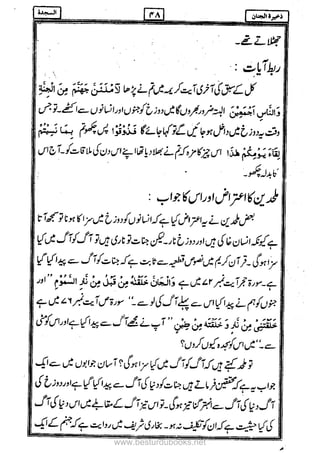 السجدة
۴۸
ذخیرۃ الجنان
جھٹلاتے تھے۔
ربط آیات :
کل کے سبق کی آخری آیت کریمہ میں تم نے پڑھا لَاَمْلَئَنَّ جَهَنَّمَ مِنَ الْجِنَّةِ
وَالنَّاسِ اَجْمَعِيْنَ البتہ ضرور بھروں گا میں دوزخ کو جنوں اور انسانوں سے اکٹھے۔ تو جس
وقت یہ دوزخ میں داخل ہو جائیں گے تو کہا جائے گا فَذُوْقُوْا پس چکھو تم بِمَا نَسِيْتُمْ
لِقَاءَ يَوْمِكُمْ هٰذَا اس چیز کا مزہ کہ تم نے بھلا دیا تھا اپنے اس دن کی ملاقات کو۔ آج اس
کا بدلہ چکھو۔
ملحدین کا اعتراض اور اس کا جواب :
بعض ملحدین نے یہ اعتراض کیا ہے کہ انسانوں کو دوزخ میں سزا کا ہونا تو سمجھ آتا
ہے کیونکہ انسان خاکی ہیں اور دوزخ نار۔ لیکن جنات تو ناری ہیں تو آگ کو آگ میں کیا
سزا ہوگی۔ قرآن کریم میں نصوص قطعیہ سے ثابت ہے کہ جنات کو آگ سے پیدا کیا گیا
ہے۔ سورۃ حجر آیت نمبر ۲۷ میں ہے وَالْجَانَّ خَلَقْنٰهُ مِنْ قَبْلُ مِنْ نَّارِ السَّمُوْمِ "اور
جنوں کو ہم نے پیدا کیا اس سے پہلے آگ کی لو سے۔" سورۃ ص آیت نمبر ۷۶ میں ہے
خَلَقْتَنِيْ مِنْ نَّارٍ وَّ خَلَقْتَهٗ مِنْ طِيْنٍ "آپ نے مجھے آگ سے پیدا کیا ہے اور اس کو مٹی
سے۔" میں اس کو سجدہ کیوں کروں؟
تو ملحد کہتے ہیں کہ آگ کو آگ میں کیا سزا ہوگی؟ آسان جوابوں میں سے ایک
جواب یہ ہے کہ محققین فرماتے ہیں جنات کو دنیا کی آگ سے پیدا کیا گیا ہے اور دوزخ کی
آگ دنیا کی آگ سے انہتر گنا تیز ہوگی۔ تو اس تیز آگ کے مقابلے میں اس دنیا کی آگ
کی کیا حیثیت ہے کہ ان کو تکلیف نہ ہو۔ بخاری شریف میں روایت ہے کہ جہنم کے ایک
www.besturdubooks.net